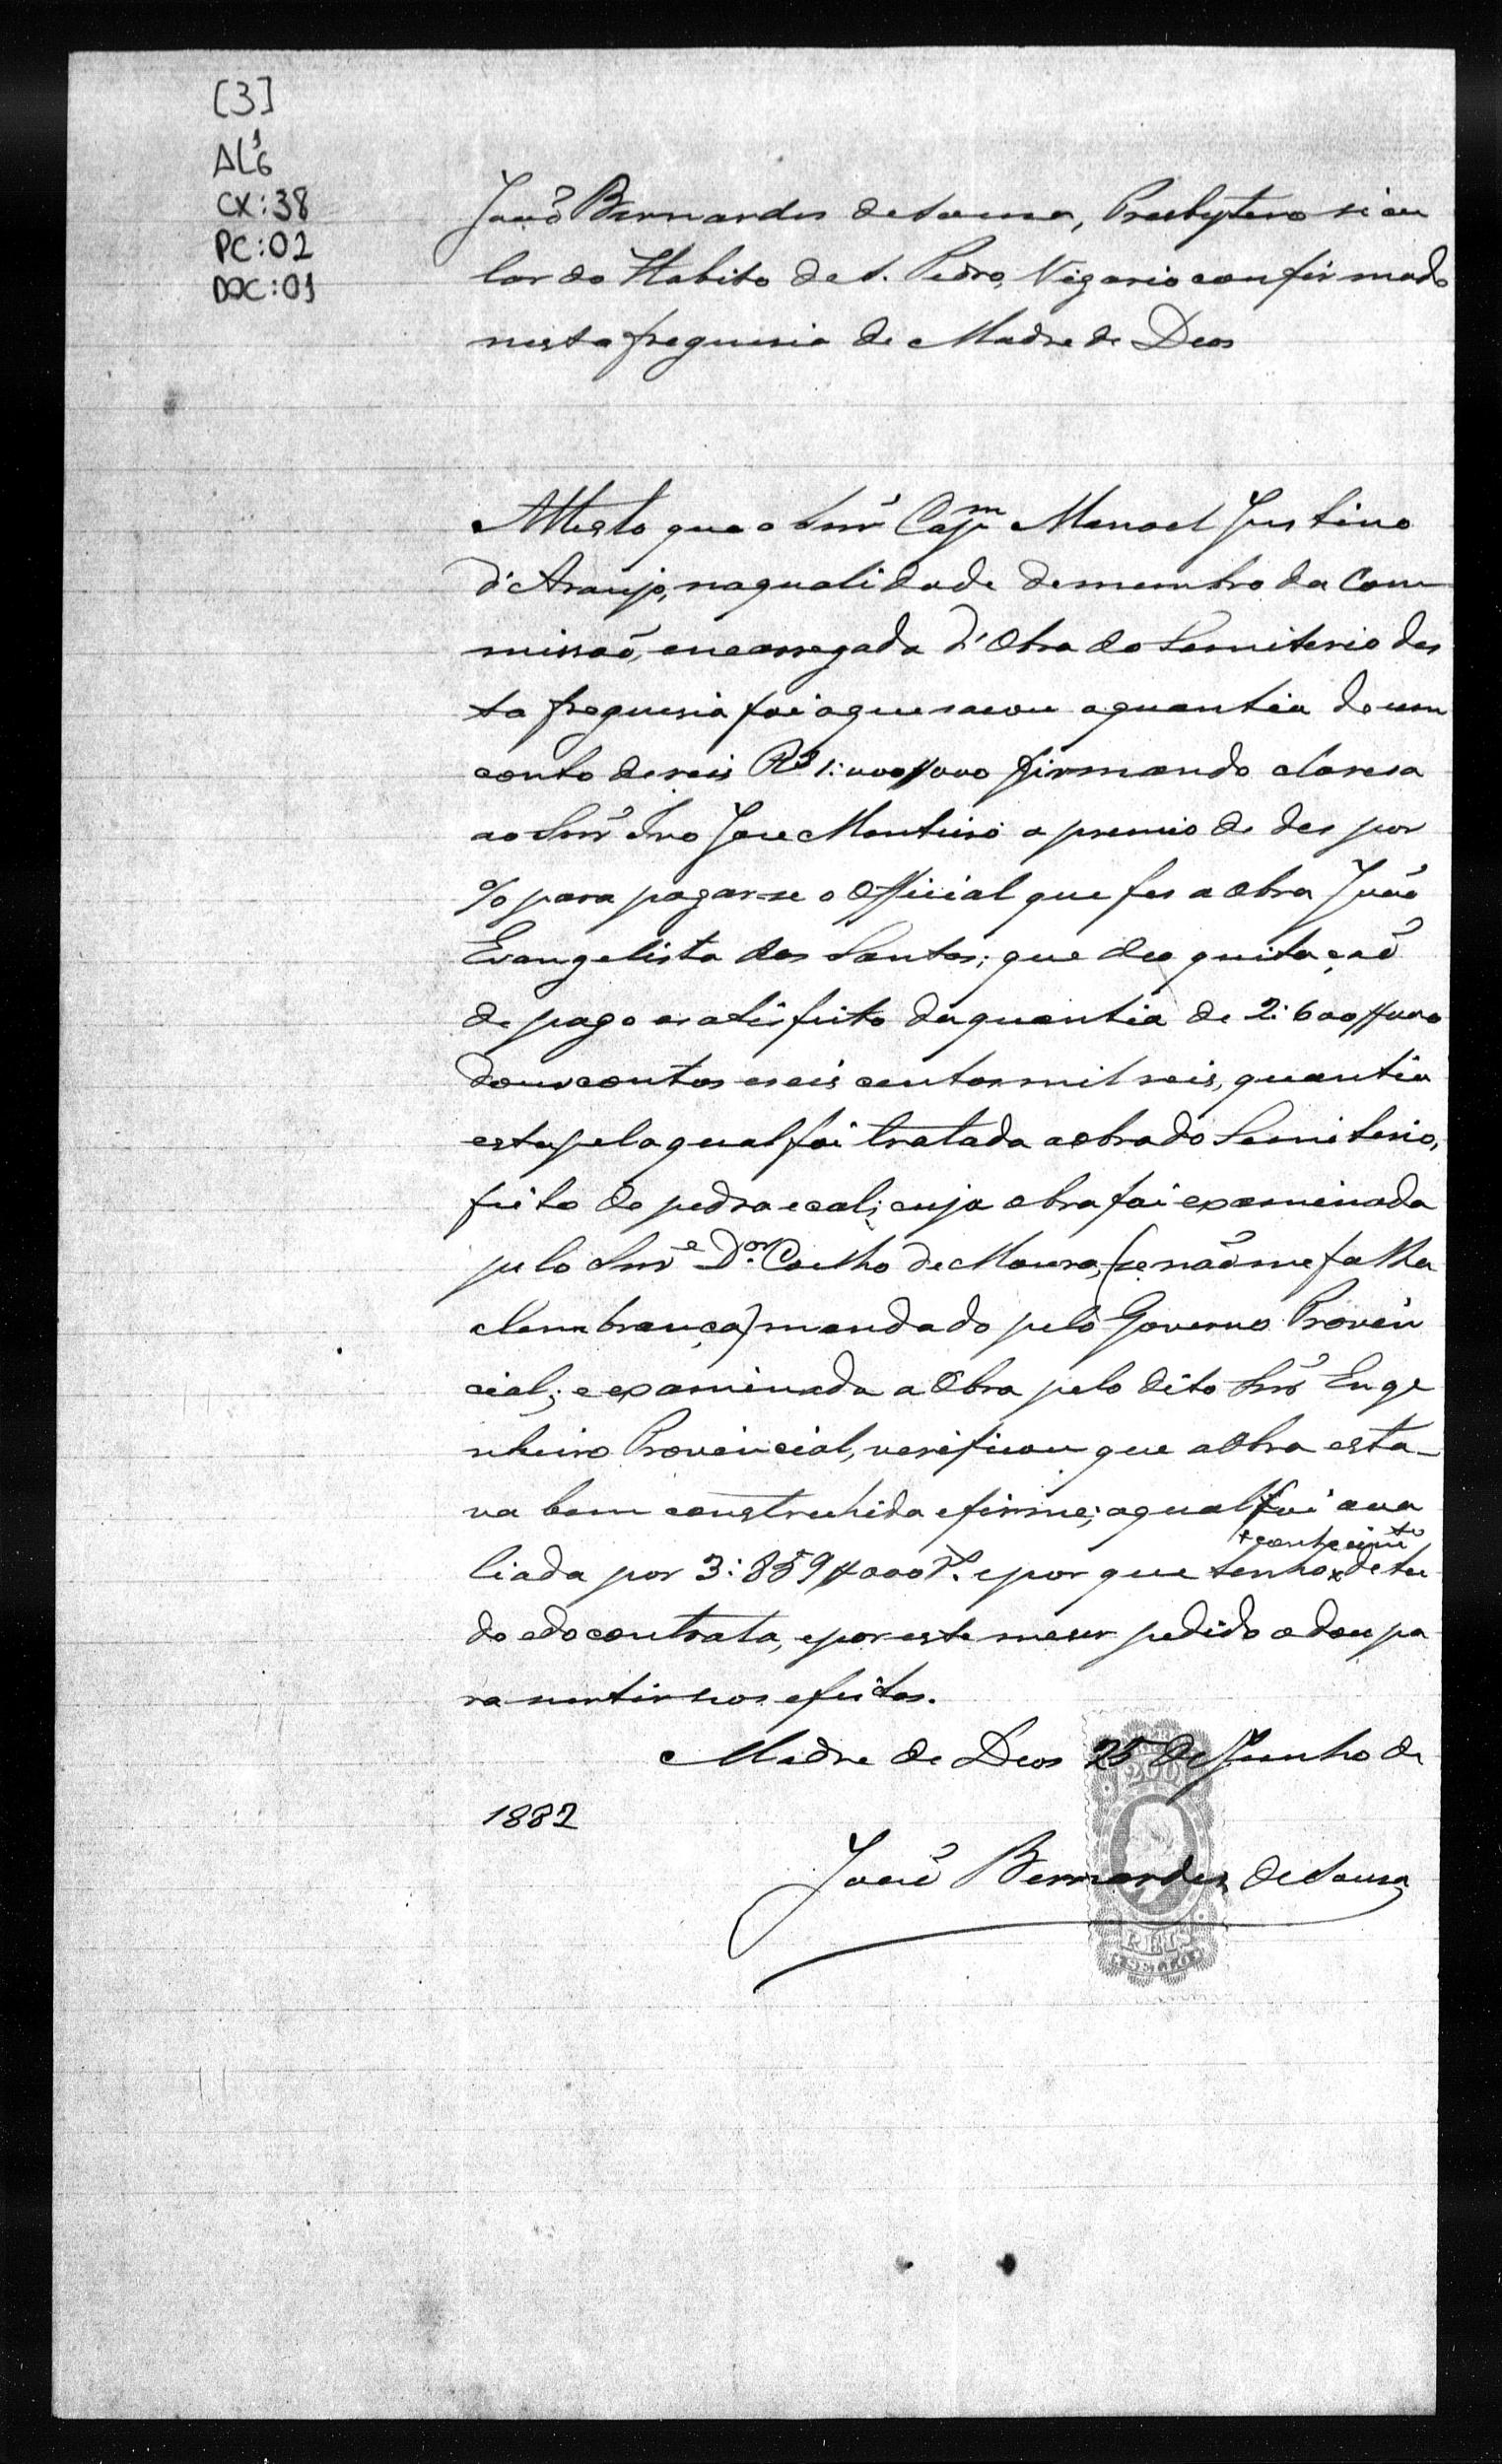 [3]
AL¹6
CX:38
PC:02
DOC:01
João Bernardes de Sousa, Presbytero sicu
lar do Habito de S. Pedro, Vigario confirmado
nesta freguesia de Madre de Deos
Attesto que o Snr Capm Manoel Justino
d'Araujo, na qualidade de membro da Com
missaõ, encarregada d'Obra do Semiterio des
ta freguesia foi a que sacou a quantia de um
conto de reis Rs 1:000$000 firmando claresa
ao Snr José Monteiro a premio de des por
% para pagar-se o Official que fes a Obra João
Evangelista dos Santos; que deo quitaçaõ
de pago e satisfeito da quantia de 2:600$000
dous contos e seis centos mil reis, quantia
esta pela qual foi tratada a obra do Semiterio,
feito de pedra e cal; cuja obra foi examinada
pelo Snr Dor Coelho de Moura, (se naõ me falha
a lembrança) mandado pelo Governo Provin
cial; e examinada a Obra pelo dito Snr Enge
nheiro Provincial, verificou que a Obra esta-
va bem construhida e firme; a qual foi ava
+ conhecimto
liada por 3:859$000 rs. e por que tenho x de tu
do e do contrata, e por este me ser pedido o dou pa
ra surtir seos efeitos.
Madre de Deos 25 de Junho de
1882
200
João Bernardes de Sousa
REIS